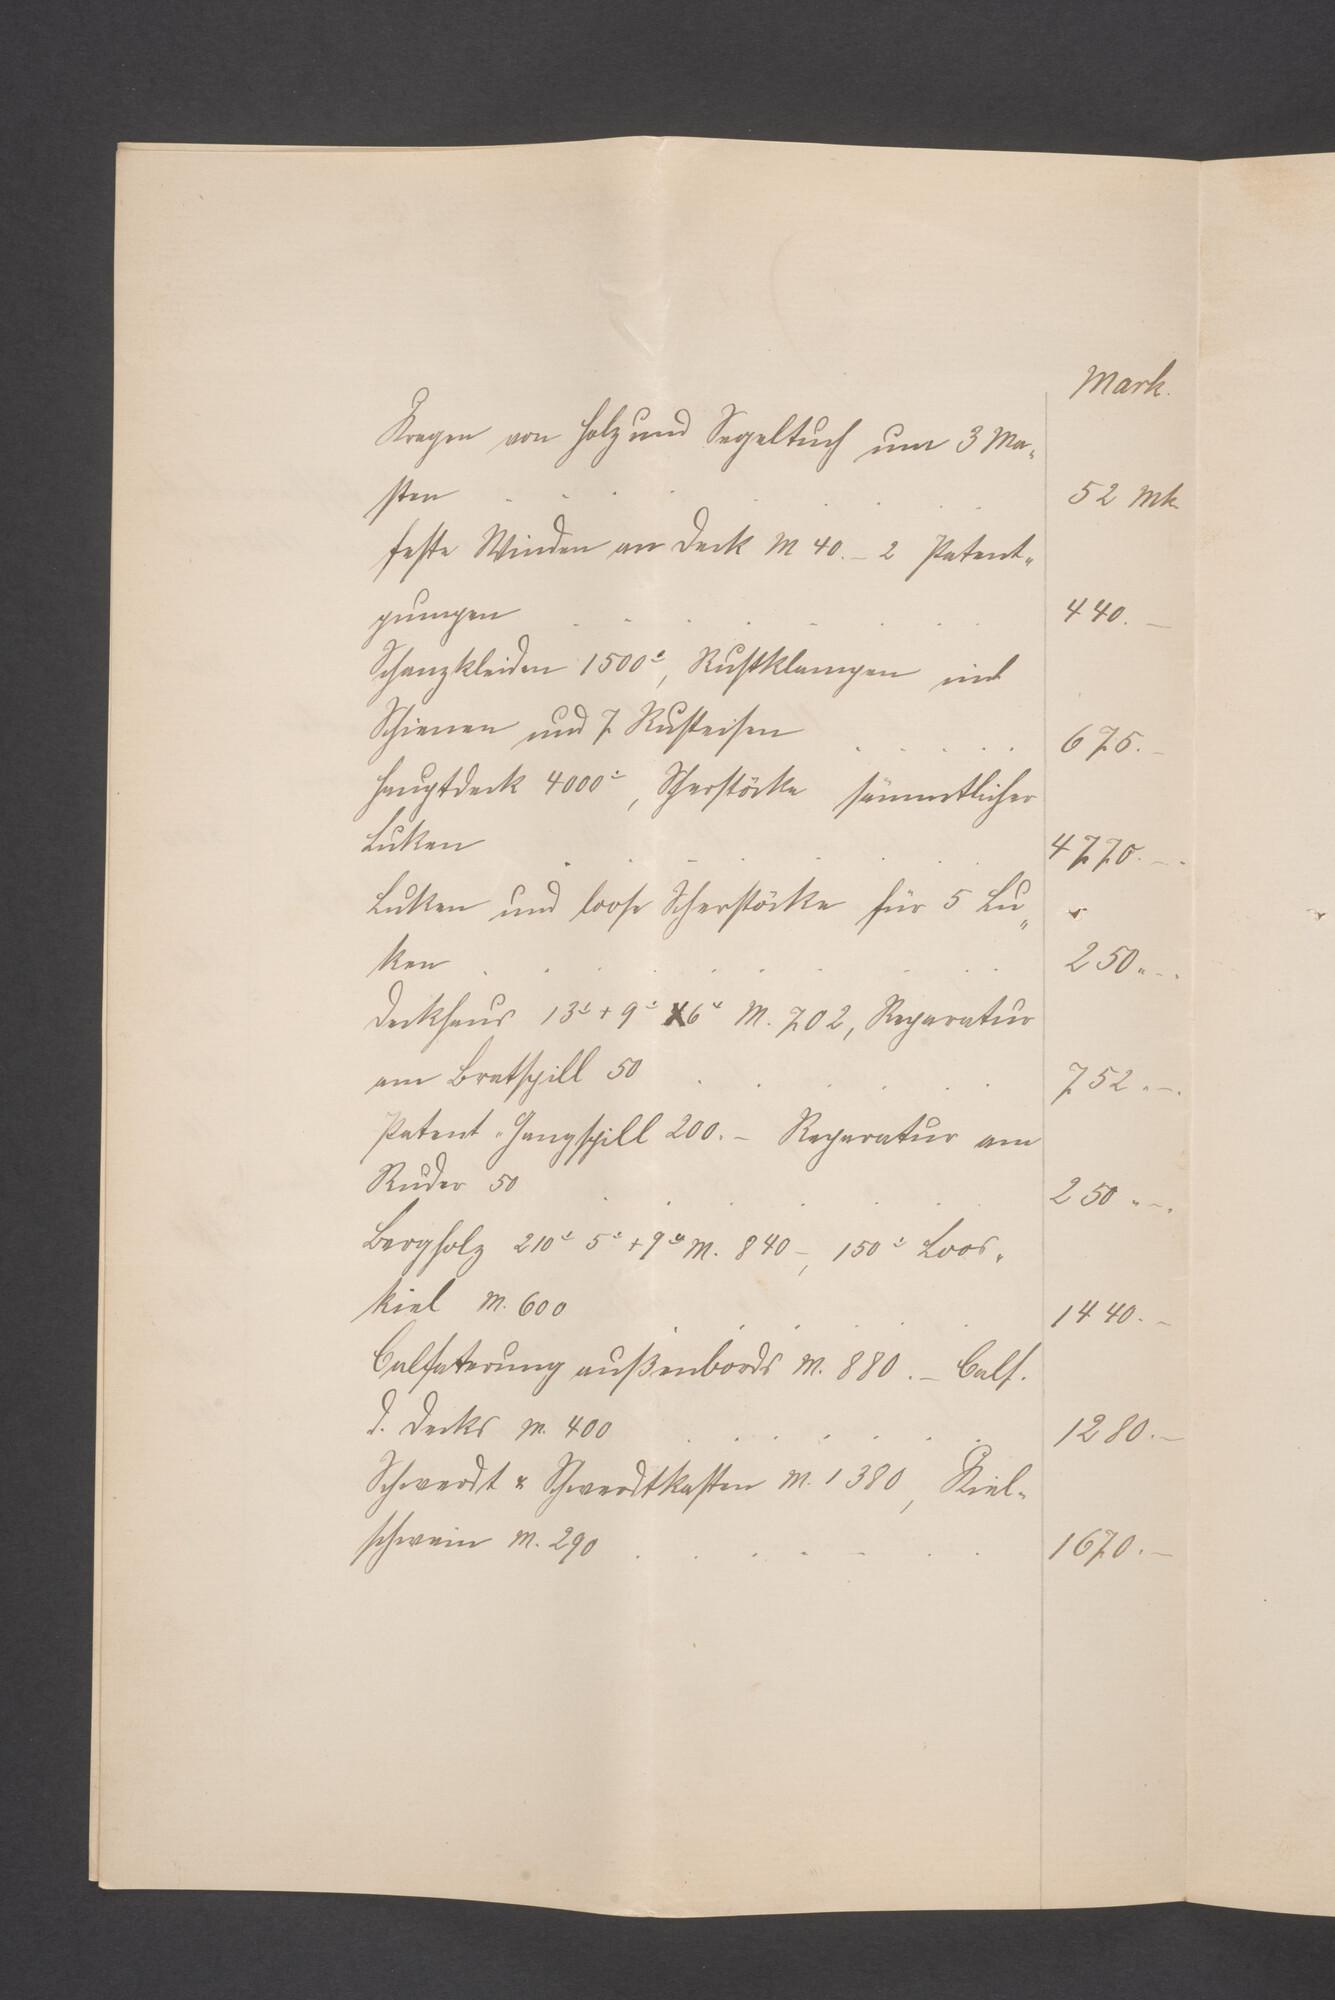 Mark.
Kragen von Holz und Segeltuch um 3 Ma„
sten . . . . . . . . 52 Mk
feste Winden an Deck M 40.– 2 Patent„
pumpen . . . . . . . . 440.–
Schanzkleiden 1500', Rustklampen und
Schienen und 7 Rusteisen . . . . . 675.–
Hauptdeck 4000', Scherstöcke sämmtlicher
Luken . . . . . . . . 4770.–
Luken und loose Scherstöcke für 5 Lu„
ken . . . . . . . . . 250.–
Deckhaus 13' + 9' X 6" M. 702, Reparatur
am Bratspill 50 . . . . . . 752.–
Patent-Gangspill 200.– Reparatur am
Ruder 50 . . . . . . . 250.–
Bergholz 210' 5" + 9" M. 840–, 150' Loos„
kiel M. 600 . . . . . . 1440.–
Calfaterung außenbords M. 880.– Calf.
d. Decks M. 400 . . . . . . 1280.–
Schwerdt & Schwerdtkasten M. 1380, Kiel„
schwein M. 290 . . . . . . . 1670.–